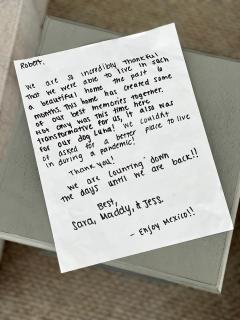 Robert,
We are so incredibly thankful
that we were able to live in such
a beautiful home the past 6
months. This home has created some
of our best memories together.
Not only was this time here
transformative for us, it also was
for our dog Luna! We couldnt
of asked for a better place to live
in during a pandemic!
Thank you!
We are counting down
the days until we are back!!
Best,
Sara, Maddy, & Jess.
- Enjoy Mexico!!